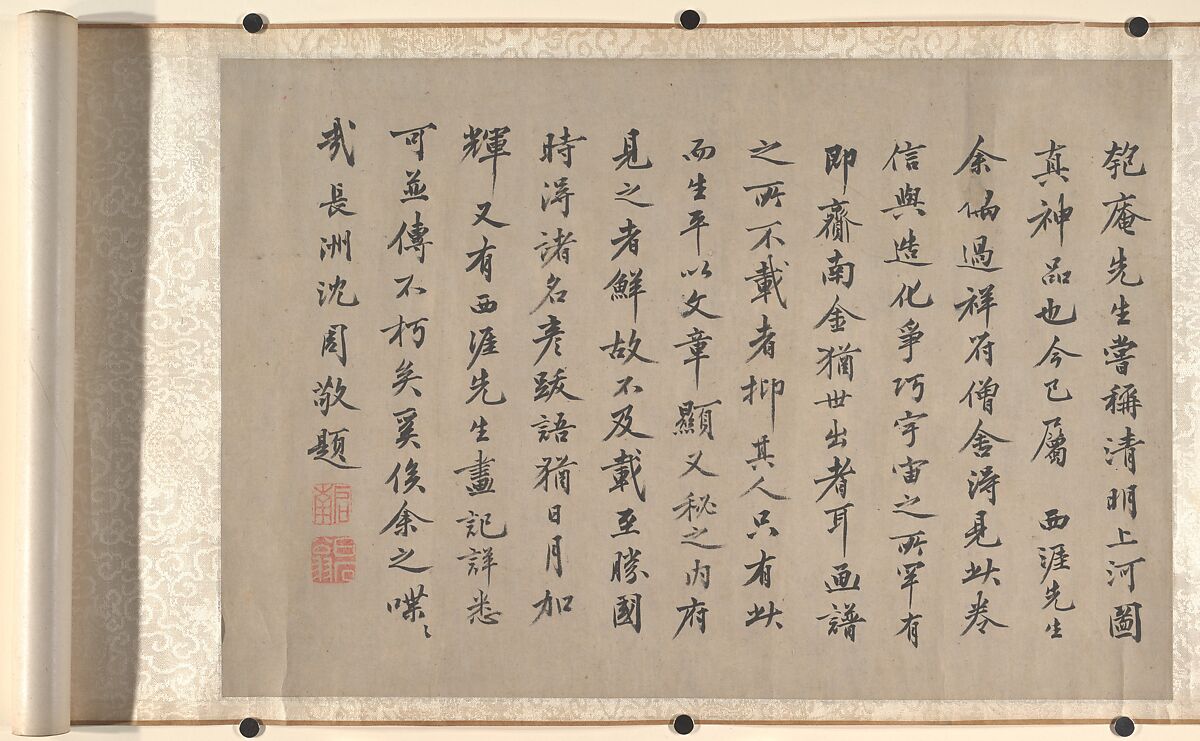 匏庵先生嘗稱清明上河圖
真神品也今已屬 西涯先生
余偶過祥符僧舍得見此卷
信與造化爭巧宇宙之所罕有
即齋南金猶世出者耳画譜
之所不載者抑其人只有此
而生平以文章顯又秘之内府
見之者鮮故不及載至勝國
時得諸名彦跋語猶日月加
輝又有西涯先生畫記詳悉
可並傳不朽矣奚俟余之喋〻
哉長洲沈周敬題
石田